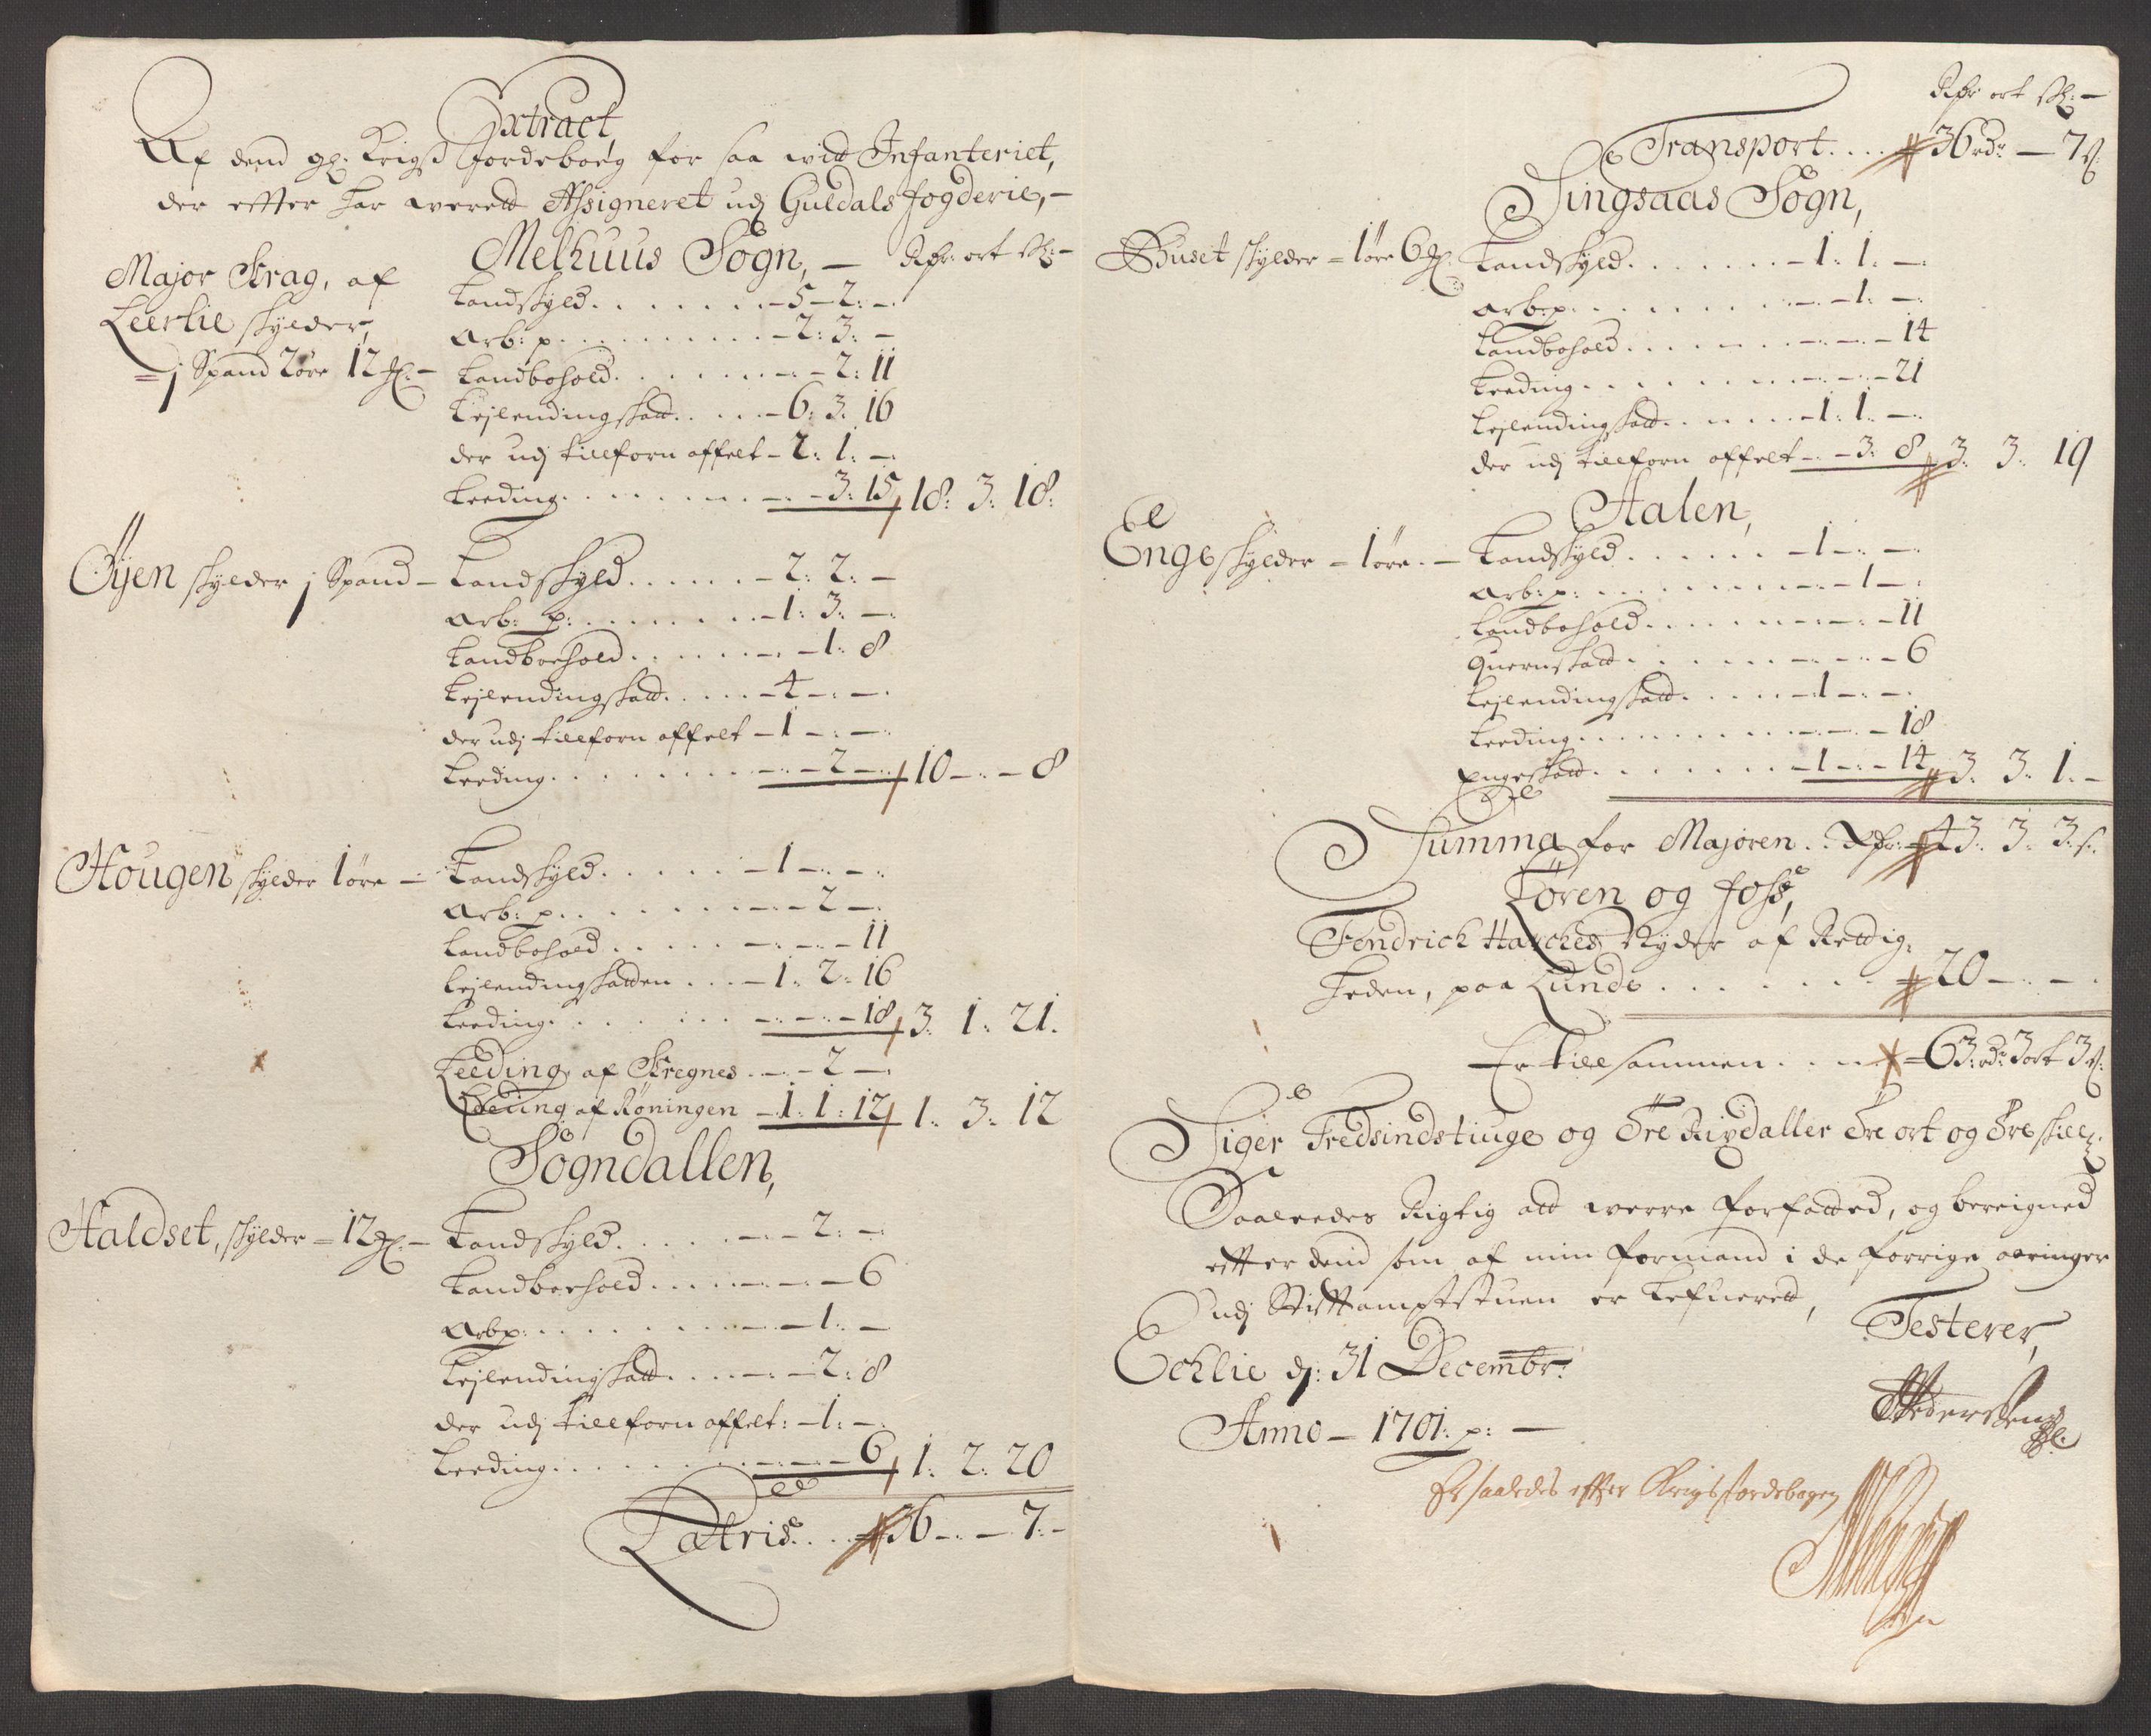 Extract,
Af dend gl: Krigs Jordeboeg for saa vitt Infanteriet,
der effter har werett Assigneret udj Guldals Fogderie,-
Melhuus Sogn, - Rdr: ort sk:-
Major Krag, af
Leerlie skylder,
- j Spand 2 øre 12 gl:-
Landskyld . . . . . . . - 5 - 2: -.
Arb: p. . . . . . . . . . - 2: 3: -
Landbohold . . . . . . . -.- 2: 11
Lejlendingskatt. . . . . - 6: 3: 16
der udj tillforn affelt - 2: 1: -.
Leeding . . . . . . . . -.- 3: 15 18: 3: 18:
Øyen skylder j Spand - Landskyld . . . . . . - 2: 2: -
Arb: p: . . . . . . . . - 1: 3: -.
Landboehold . . . . . . -. - 1: 8
Lejlendingskatt. . . . . - 4 -.- -.
der udj tillforn affelt - 1 -.- -.
Leeding . . . . . . . . -.- 2 -. 10 -.- - 8
Hougen skylder 1 øre - Landskyld . . . . . - 1 -.- -.
Arb: p. . . . . . . . -.- 2 -.
Landbohold . . . . . -.- -.- 11
Lejlendingskatten . . . - 1: 2: 16
Leeding . . . . . . . -.- -.- 18 3: 1: 21.
Leeding af Kregnes . -.- 2 -.
Leeding af Røningen - 1: 1: 12 1: 3: 12
Sogndallen,
Haldset, skylder - 12 gl:- Landskyld . . . . . -.- 2: -.
Landboehold . . . . -.- -.- 6
Arbp: . . . . . . . . -.- 1: -
Lejlendingskatt . . . -.- 2: 8
der udj tillforn affelt: - 1: -.
Leeding . . . . . . . . -.- -.- 6 1: 2: 20
Lattris . . . 36 -.- - 7:-
Rdr ort sk: -
Transport . . . . 36 rdr - 7 s:
Singsaas Sogn,
Huset skylder - 1 øre 6 gl: Landskyld . . . . . . . - 1: 1: -.
Arb:p: . . . . . . . . -.- 1: -.
Landbohold . . . . . . -.- -.- 14
Leeding . . . . . . . . -.- -.- 21
Lejlendingskatt . . . . . - 1: 1: -.
der udj tillforn affelt -.- 3: 8 3: 3: 19
Aalen,
Enge skylder - 1 øre. - Landskyld . . . . . . - 1 -.- -.
Arb:p: . . . . . . . . -.- 1 -.
Landbohold . . . . . . -.- -.- 11
Quernskatt . . . . . -.- -.- 6
Lejlendingskatt . . . . . - 1 -.- -.
Leeding . . . . . . . . -.- -.- 18
Engeskatt . . . . . . . - 1 -.- 14 3: 3: 1: -
Summa for Majoren . . Rdr: 43: 3: 3 s:
Støren og Foss,
Fendrich Harches Nyder af Rettig:
heden, paa Lunde . . . . . . . 20 -.- -.
Er tillsammen . . . 63 rdr 3 ort 3 s:
Siger Tredsindstiuge og Tre Rixdaller Tre ort og Tre skill:
Saaledes Rigtig att werre forfatted, og bereigned
effter dend som af min formand i de forrige aaringer
udj Stifftamptstuen er Lefueret,
Testerer,
Echlie d: 31 Decembr:
Anno - 1701: p: -
Er saaledes effter Krigs Jordebogen